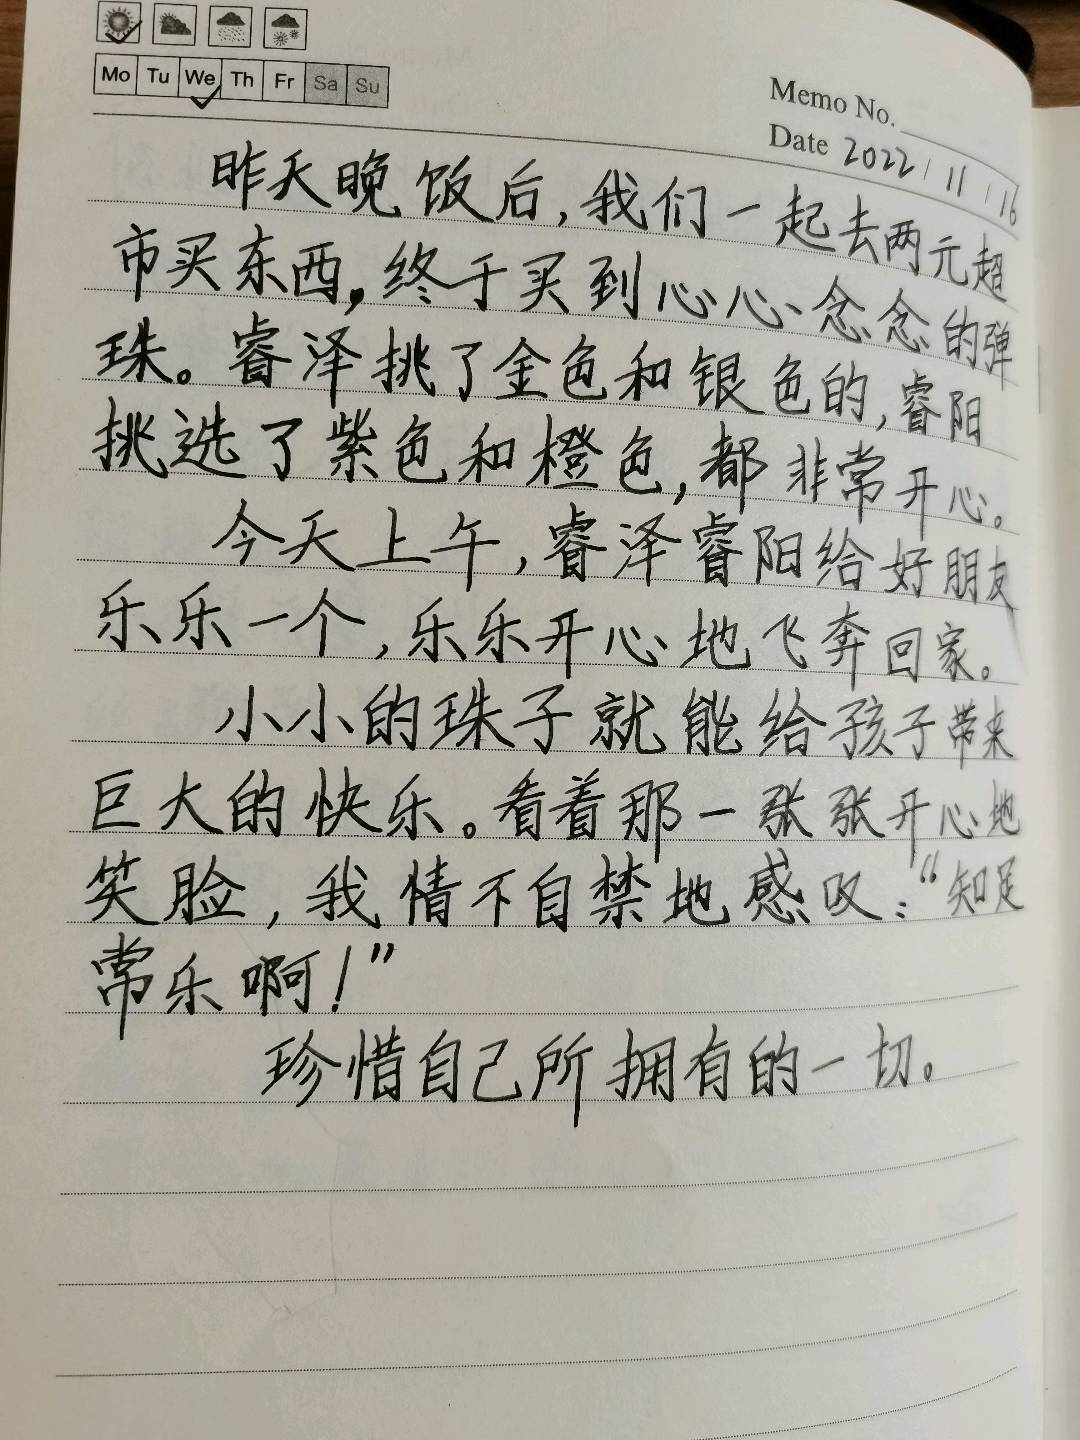 Mo Tu We Th Fr Sa Su
Memo No.
Date 2022 / 11 / 16
昨天晚饭后,我们一起去两元超
市买东西,终于买到心心念念的弹
珠。睿泽挑了金色和银色的,睿阳
挑选了紫色和橙色,都非常开心。
今天上午,睿泽睿阳给好朋友
乐乐一个,乐乐开心地飞奔回家。
小小的珠子就能给孩子带来
巨大的快乐。看着那一张张开心地
笑脸,我情不自禁地感叹:“知足
常乐啊!”
珍惜自己所拥有的一切。